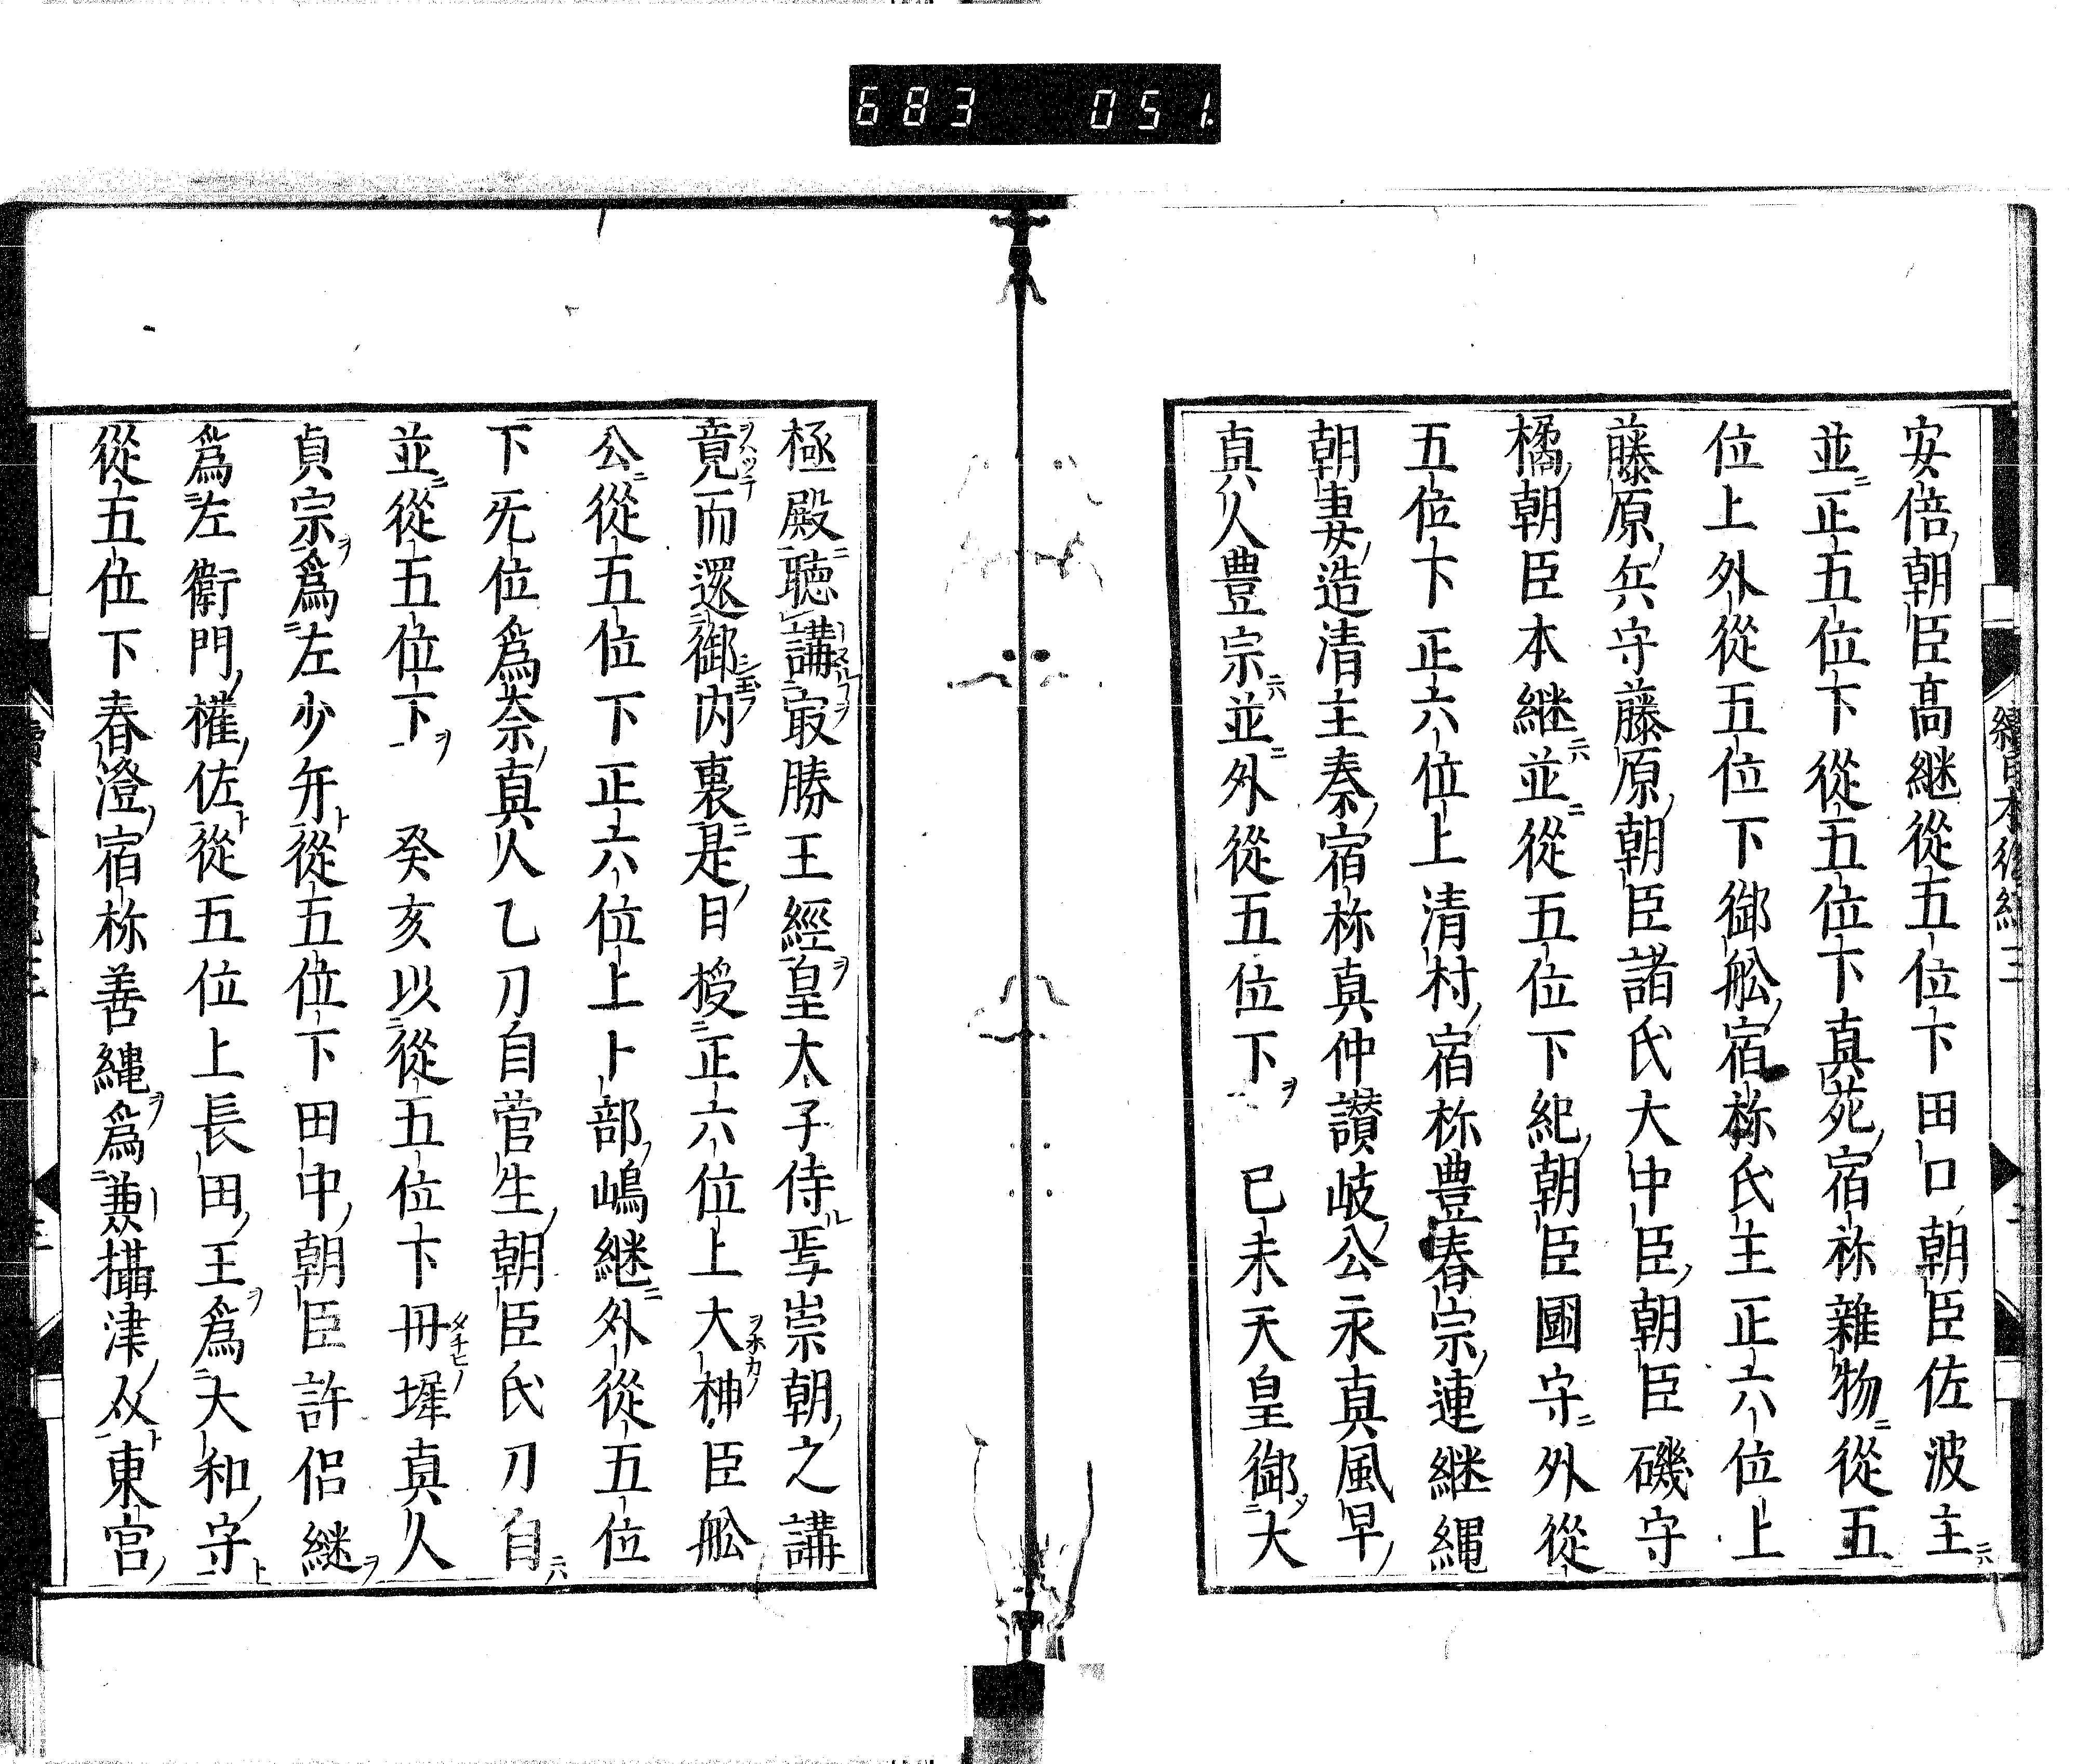 683 051.
安倍朝臣高継從五位下田口朝臣佐波主
並正五位下從五位下真苑宿祢雜物從五
位上外從五位下御舩宿祢氏主正六位上
藤原兵守藤原朝臣諸氏大中臣朝臣磯守
橘朝臣本継並從五位下紀朝臣國守外從
五位下正六位上清村宿祢豊春宗連継縄
朝妻造清主秦宿祢真仲讃岐公永真風早
真人豊宗並外從五位下 己未天皇御大
極殿聴講冣勝王經皇太子侍焉崇朝之講
竟而還御内裏是日授正六位上大神臣舩
公從五位下正六位上卜部嶋継外從五位
下旡位爲奈真人乙刀自菅生朝臣氏刀自
並從五位下 癸亥以從五位下丹墀真人
貞宗爲左少弁從五位下田中朝臣許侶継
爲左衛門權佐從五位上長田王爲大和守
從五位下春澄宿祢善縄爲兼攝津介東宮